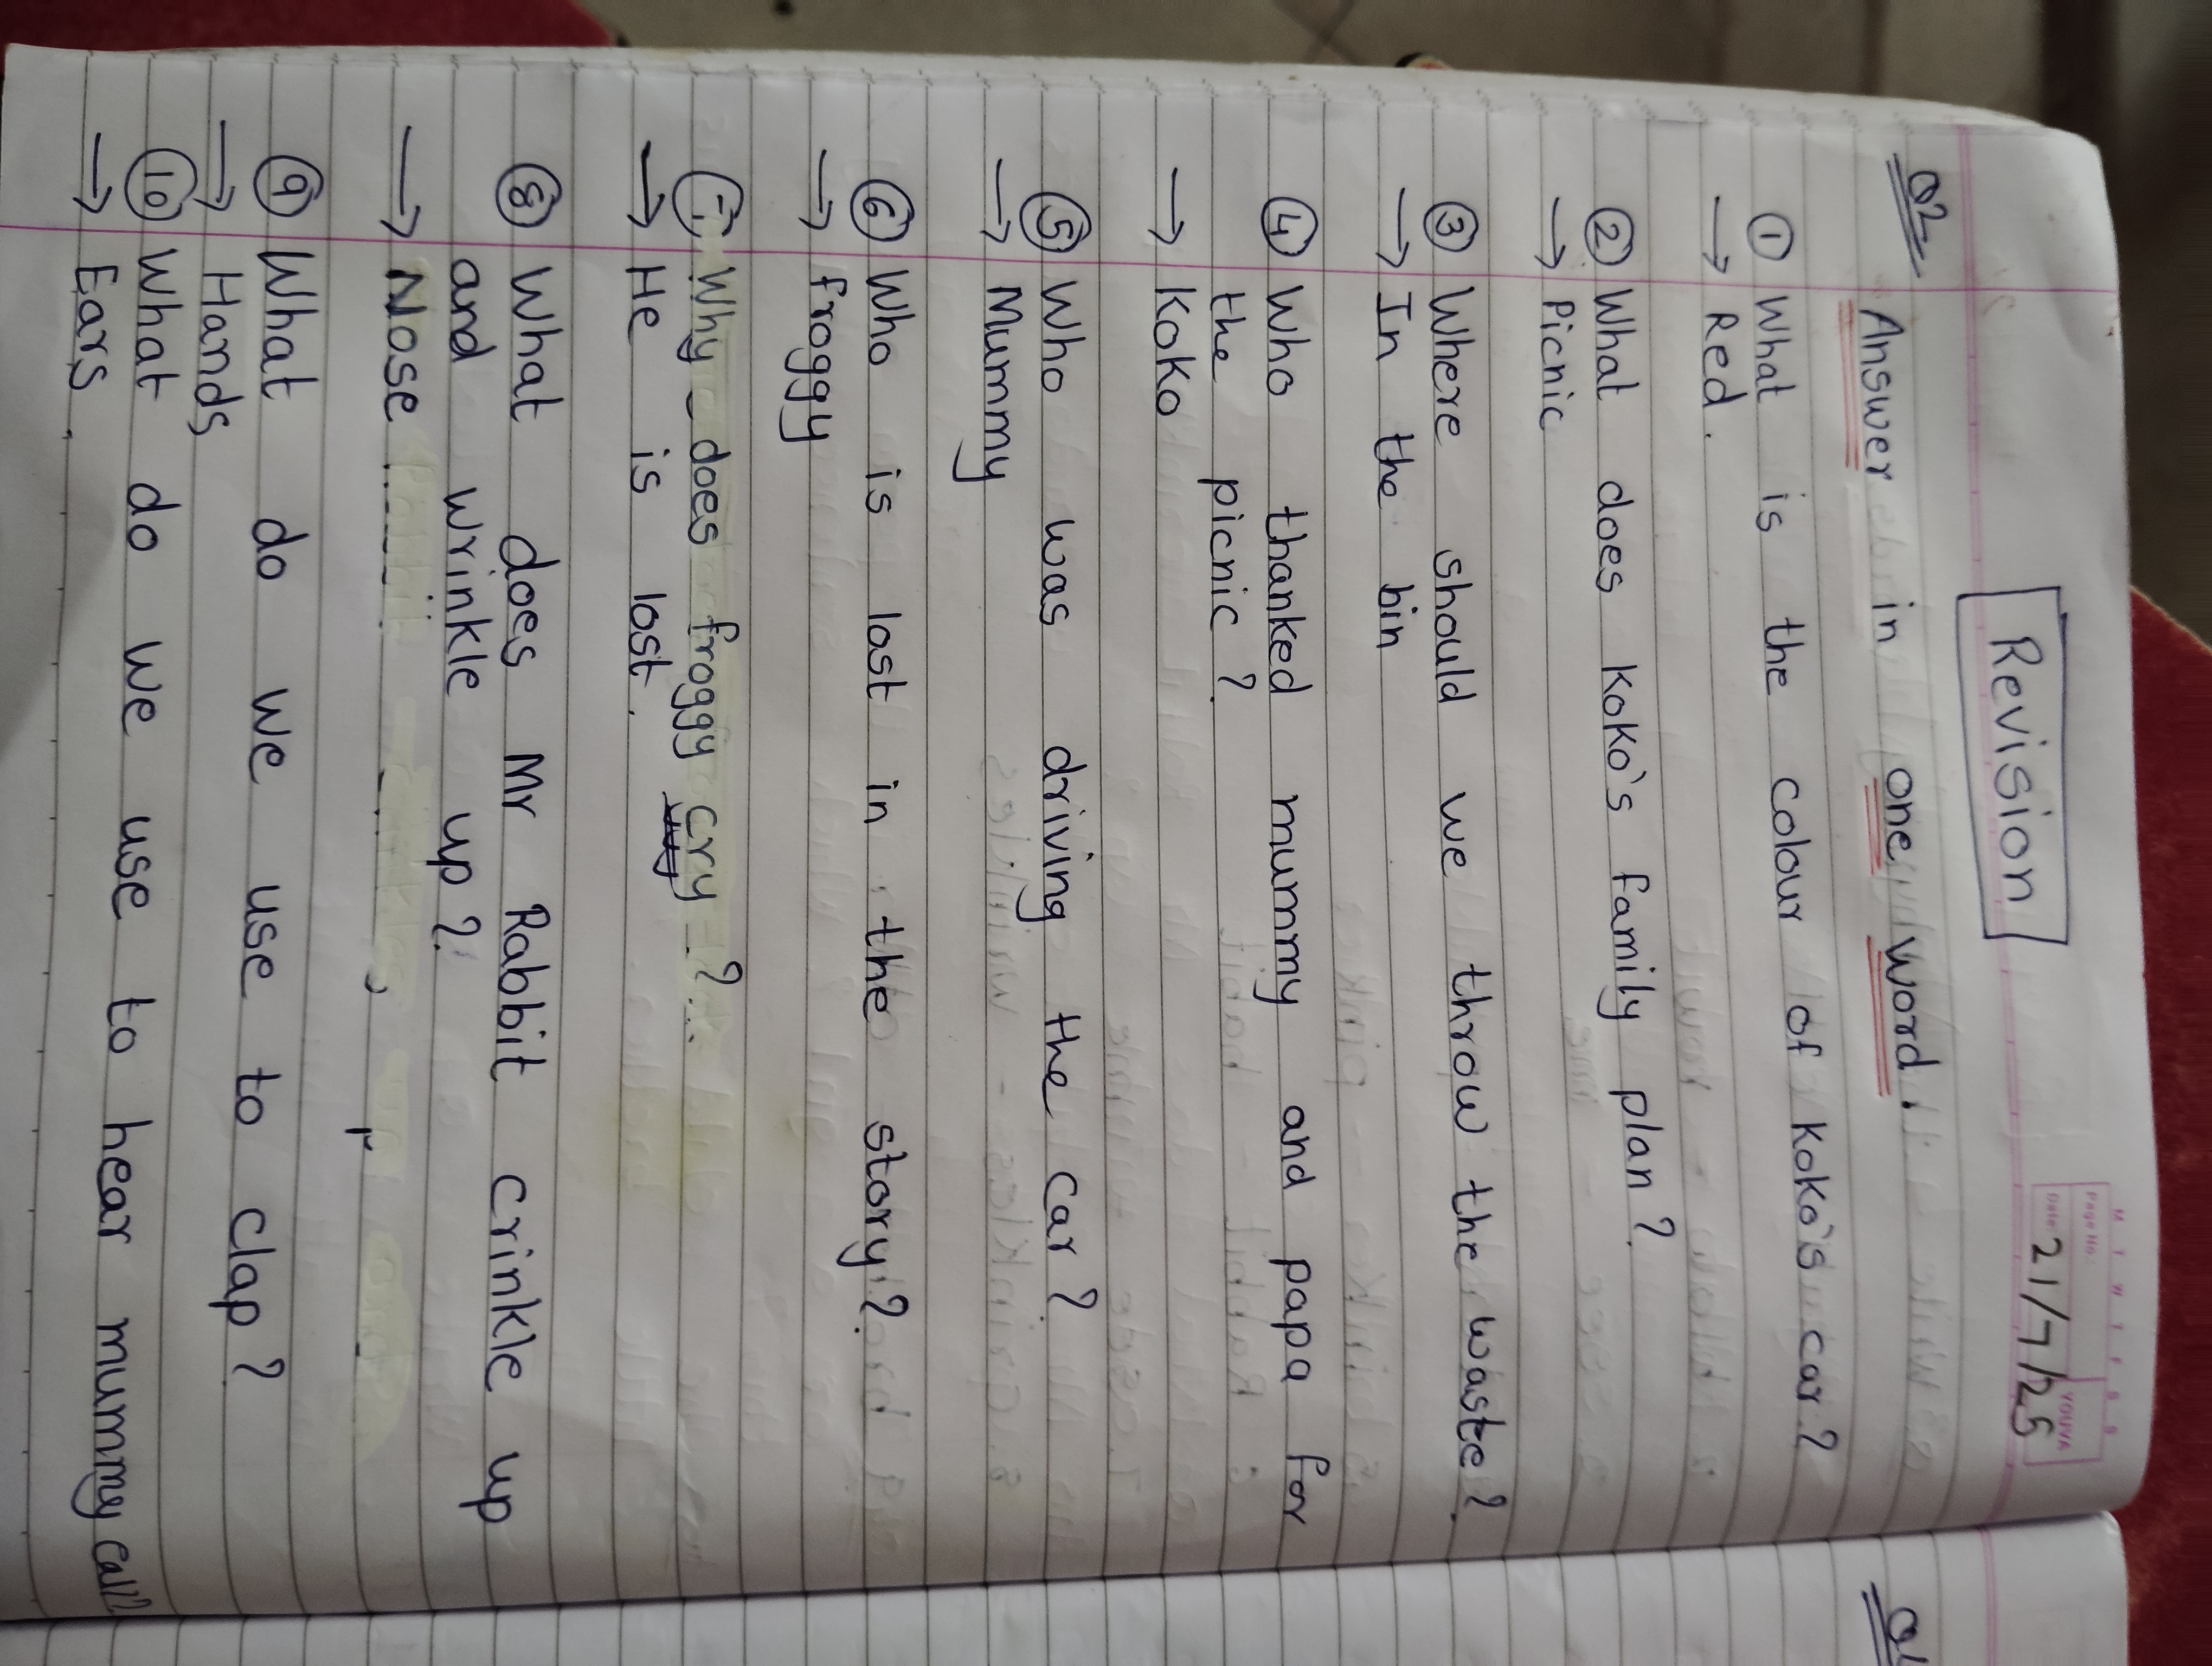 M T W T F S S
Page No.:
YOUVA
Date: 21/7/25
Revision
Q2. Answer in one word.
① What is the colour of Koko's car?
→ Red.
② What does Koko's family plan?
→ Picnic
③ Where should we throw the waste?
→ In the bin
④ Who thanked mummy and papa for
the picnic?
→ Koko
⑤ Who was driving the car?
→ Mummy
⑥ Who is lost in the story?
→ froggy
⑦ Why does froggy cry?
→ He is lost.
⑧ What does Mr Rabbit crinkle up
and wrinkle up?
→ Nose
⑨ What do we use to clap?
→ Hands
⑩ What do we use to hear mummy call?
→ Ears.